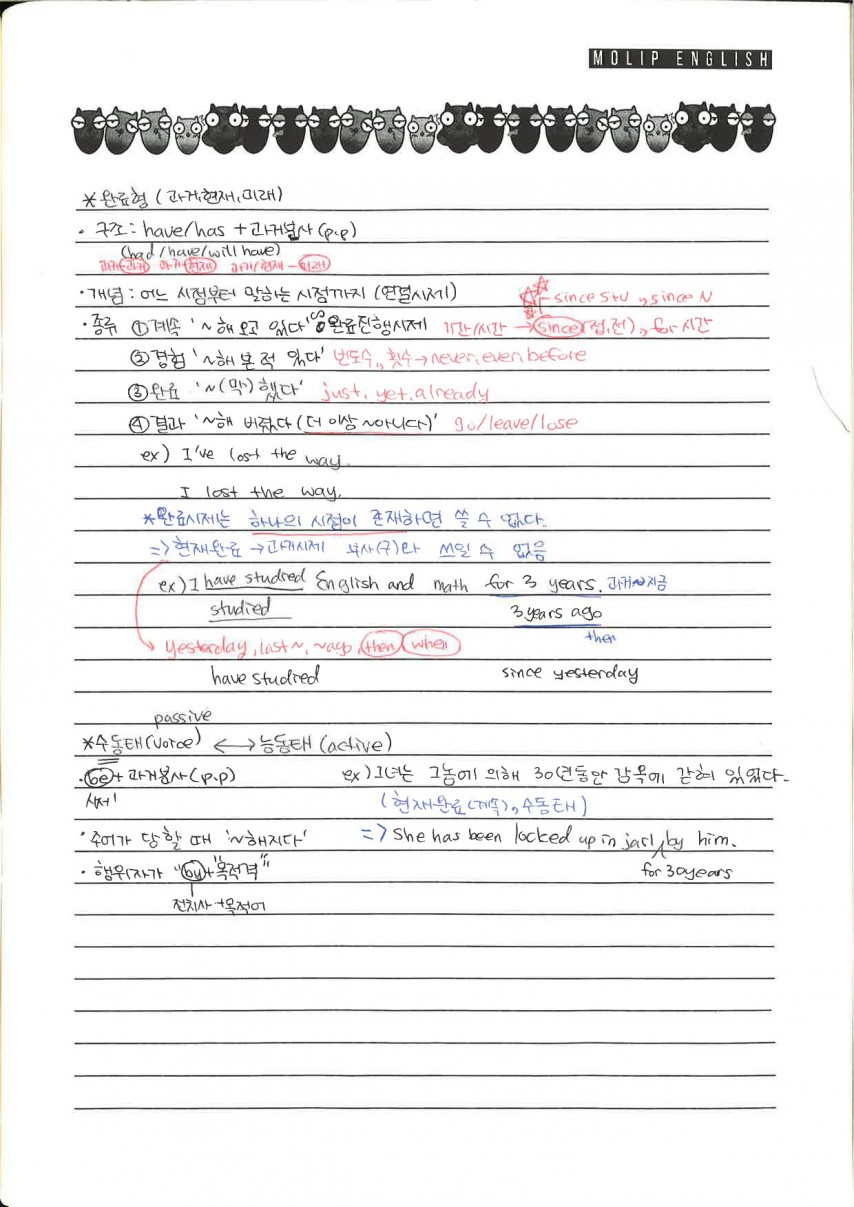 MOLIP ENGLISH
*완료형 (과거,현재,미래)
· 구조: have/has + 과거분사 (p.p)
(had/have/will have)
과거-과거 과거-현재 과거/현재-미래
· 개념 : 어느 시점부터 말하는 시점까지 (연결시제)
since S+V, since N
· 종류 ① 계속 '~해 오고 있다' 완료진행시제 기간/시간 → since(접,전), for 시간
② 경험 '~해 본 적 있다' 빈도수, 횟수 → never, ever, before
③ 완료 '~(막) 했다' just, yet, already
④ 결과 '~해 버렸다 (더 이상 ~아니다)' go/leave/lose
ex) I've lost the way.
I lost the way.
*완료시제는 하나의 시점이 존재하면 쓸 수 없다.
=> 현재완료 → 과거시제 부사(구)와 쓰일 수 없음
ex) I have studied English and math for 3 years. 과거~지금
studied 3 years ago
then
yesterday, last~, ~ago, then when
have studied since yesterday
passive
*수동태(voice) <-> 능동태 (active)
· be + 과거분사(p.p) ex) 그녀는 그놈에 의해 30년동안 감옥에 갇혀 있었다.
시제! (현재완료(계속), 수동태)
· 주어가 당할 때 '~해지다' => She has been locked up in jarl by him.
· 행위자가 "by+목적격" for 30years
전치사 +목적어